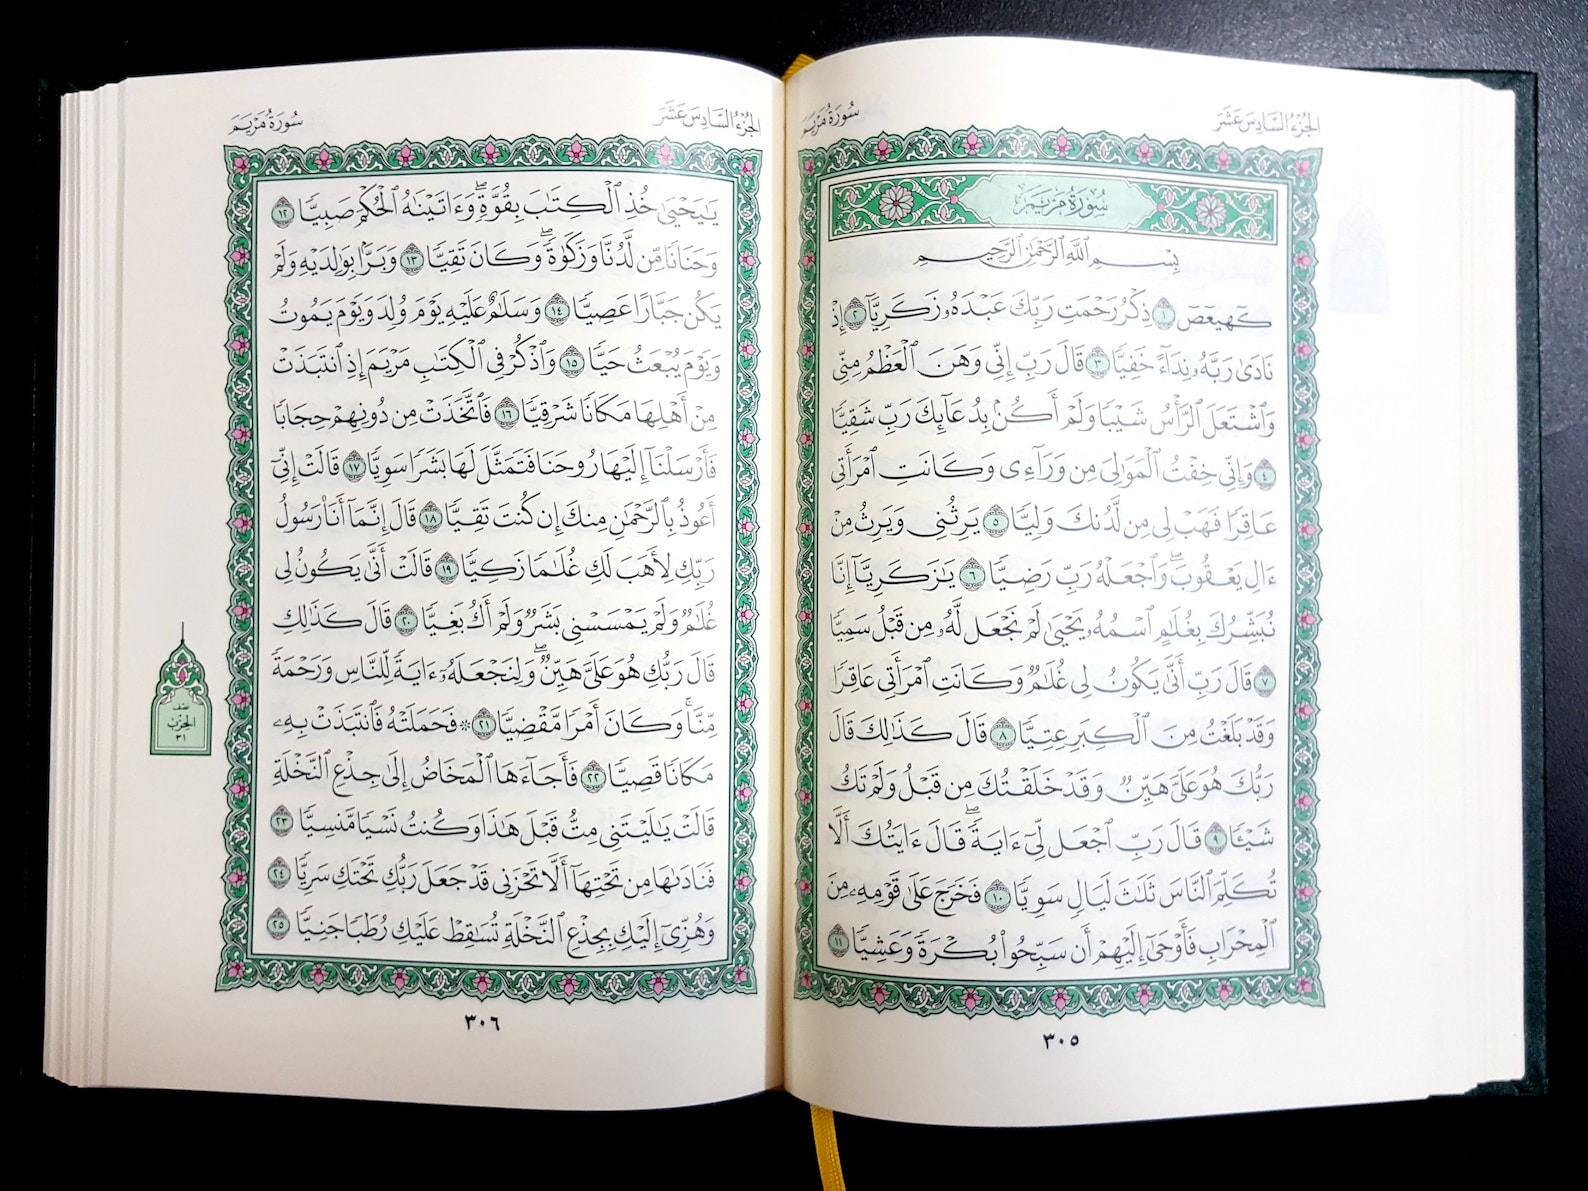 الجُزْءُ السَّادِسَ عَشَرَ
سُورَةُ مَرْيَمَ
سُورَةُ مَرْيَمَ
بِسْمِ ٱللَّهِ ٱلرَّحْمَٰنِ ٱلرَّحِيمِ
كٓهيعٓصٓ ١ ذِكْرُ رَحْمَتِ رَبِّكَ عَبْدَهُۥ زَكَرِيَّآ ٢ إِذْ
نَادَىٰ رَبَّهُۥ نِدَآءً خَفِيًّا ٣ قَالَ رَبِّ إِنِّى وَهَنَ ٱلْعَظْمُ مِنِّى
وَٱشْتَعَلَ ٱلرَّأْسُ شَيْبًا وَلَمْ أَكُنۢ بِدُعَآئِكَ رَبِّ شَقِيًّا
٤ وَإِنِّى خِفْتُ ٱلْمَوَٰلِىَ مِن وَرَآءِى وَكَانَتِ ٱمْرَأَتِى
عَاقِرًا فَهَبْ لِى مِن لَّدُنكَ وَلِيًّا ٥ يَرِثُنِى وَيَرِثُ مِنْ
ءَالِ يَعْقُوبَ ۖ وَٱجْعَلْهُ رَبِّ رَضِيًّا ٦ يَٰزَكَرِيَّآ إِنَّا
نُبَشِّرُكَ بِغُلَٰمٍ ٱسْمُهُۥ يَحْيَىٰ لَمْ نَجْعَل لَّهُۥ مِن قَبْلُ سَمِيًّا
٧ قَالَ رَبِّ أَنَّىٰ يَكُونُ لِى غُلَٰمٌ وَكَانَتِ ٱمْرَأَتِى عَاقِرًا
وَقَدْ بَلَغْتُ مِنَ ٱلْكِبَرِ عِتِيًّا ٨ قَالَ كَذَٰلِكَ قَالَ
رَبُّكَ هُوَ عَلَىَّ هَيِّنٌ وَقَدْ خَلَقْتُكَ مِن قَبْلُ وَلَمْ تَكُ
شَيْـًٔا ٩ قَالَ رَبِّ ٱجْعَل لِّىٓ ءَايَةً ۚ قَالَ ءَايَتُكَ أَلَّا
تُكَلِّمَ ٱلنَّاسَ ثَلَٰثَ لَيَالٍ سَوِيًّا ١٠ فَخَرَجَ عَلَىٰ قَوْمِهِۦ مِنَ
ٱلْمِحْرَابِ فَأَوْحَىٰٓ إِلَيْهِمْ أَن سَبِّحُوا۟ بُكْرَةً وَعَشِيًّا ١١
٣٠٥
الجُزْءُ السَّادِسَ عَشَرَ
سُورَةُ مَرْيَمَ
يَٰيَحْيَىٰ خُذِ ٱلْكِتَٰبَ بِقُوَّةٍ ۖ وَءَاتَيْنَٰهُ ٱلْحُكْمَ صَبِيًّا ١٢
وَحَنَانًا مِّن لَّدُنَّا وَزَكَوٰةً ۖ وَكَانَ تَقِيًّا ١٣ وَبَرًّۢا بِوَٰلِدَيْهِ وَلَمْ
يَكُن جَبَّارًا عَصِيًّا ١٤ وَسَلَٰمٌ عَلَيْهِ يَوْمَ وُلِدَ وَيَوْمَ يَمُوتُ
وَيَوْمَ يُبْعَثُ حَيًّا ١٥ وَٱذْكُرْ فِى ٱلْكِتَٰبِ مَرْيَمَ إِذِ ٱنتَبَذَتْ
مِنْ أَهْلِهَا مَكَانًا شَرْقِيًّا ١٦ فَٱتَّخَذَتْ مِن دُونِهِمْ حِجَابًا
فَأَرْسَلْنَآ إِلَيْهَا رُوحَنَا فَتَمَثَّلَ لَهَا بَشَرًا سَوِيًّا ١٧ قَالَتْ إِنِّىٓ
أَعُوذُ بِٱلرَّحْمَٰنِ مِنكَ إِن كُنتَ تَقِيًّا ١٨ قَالَ إِنَّمَآ أَنَا۠ رَسُولُ
رَبِّكِ لِأَهَبَ لَكِ غُلَٰمًا زَكِيًّا ١٩ قَالَتْ أَنَّىٰ يَكُونُ لِى
غُلَٰمٌ وَلَمْ يَمْسَسْنِى بَشَرٌ وَلَمْ أَكُ بَغِيًّا ٢٠ قَالَ كَذَٰلِكِ
قَالَ رَبُّكِ هُوَ عَلَىَّ هَيِّنٌ ۖ وَلِنَجْعَلَهُۥٓ ءَايَةً لِّلنَّاسِ وَرَحْمَةً
مِّنَّا ۚ وَكَانَ أَمْرًا مَّقْضِيًّا ٢١ ۞ فَحَمَلَتْهُ فَٱنتَبَذَتْ بِهِۦ
مَكَانًا قَصِيًّا ٢٢ فَأَجَآءَهَا ٱلْمَخَاضُ إِلَىٰ جِذْعِ ٱلنَّخْلَةِ
قَالَتْ يَٰلَيْتَنِى مِتُّ قَبْلَ هَٰذَا وَكُنتُ نَسْيًا مَّنسِيًّا ٢٣
فَنَادَىٰهَا مِن تَحْتِهَآ أَلَّا تَحْزَنِى قَدْ جَعَلَ رَبُّكِ تَحْتَكِ سَرِيًّا ٢٤
وَهُزِّىٓ إِلَيْكِ بِجِذْعِ ٱلنَّخْلَةِ تُسَٰقِطْ عَلَيْكِ رُطَبًا جَنِيًّا ٢٥
نصف
الحِزْبُ
٣١
٣٠٦